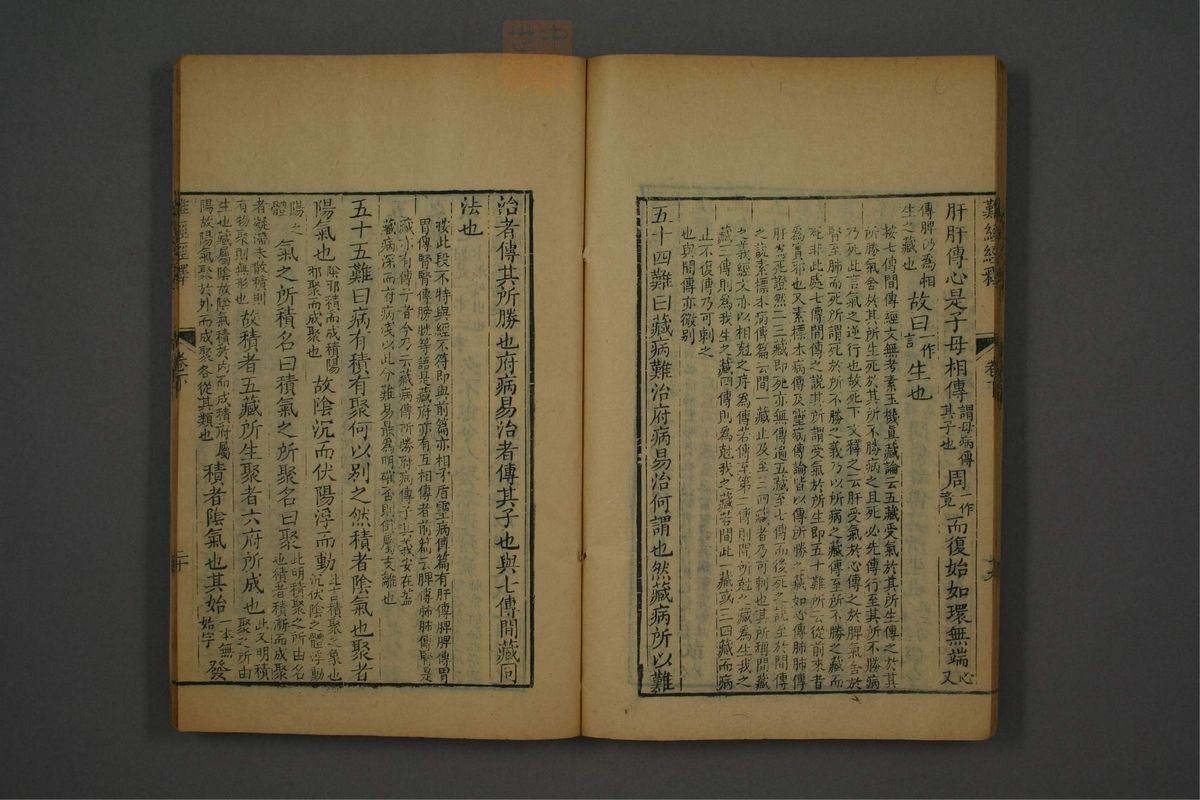 難經經釋
卷下
肝肝傳心是子母相傳謂母病傳其子也周一作竟而復始如環無端心又
傳脾乃為相生之藏也故曰一作言生也
按七傳間傳經文無考素玉機眞藏論云五藏受氣於其所生傳之於其
所勝氣舍於其所生死於其所不勝病之且死必先傳行至其所不勝病
乃死此言氣之逆行也故死下文釋之云肝受氣於心傳之於脾氣舍於
腎至肺而死所謂死於所不勝之義乃以所病之藏傳至所不勝之藏而
死非此處七傳間傳之說其所謂受氣於所生即五十難所云從前來者
為實邪也又素標本病傳及靈病傳論皆以傳所勝之藏如心傳肺肺傳
肝為死證然二三藏即死亦無傳遍五藏至七傳而後死之說至於間傳
之說素標本病傳篇云間一藏止及至三四藏者乃可刺也其所稱間藏
之義經文亦以相尅之序為傳若傳至第二傳則間所尅之藏為生我之
藏三傳則為我生之藏四傳則為尅我之藏若間此一藏或三四藏而病
止不復傳乃可刺之
也與間傳亦微別
五十四難曰藏病難治府病易治何謂也然藏病所以難
治者傳其所勝也府病易治者傳其子也與七傳間藏同
法也
按此段不特與經不符即與前篇亦相矛盾靈病傳篇有肝傳脾脾傳胃
胃傳腎腎傳膀胱等語是藏府亦有互相傳者前篇云脾傳肺肺傳腎是
藏亦有傳子者今乃云藏病傳所勝府病傳子其義安在蓋
藏病深而府病淺以此分難易最為明確否則衝屬支離也
五十五難曰病有積有聚何以別之然積者陰氣也聚者
陽氣也陰邪積而成積陽邪聚而成聚也故陰沉而伏陽浮而動此言積聚之象也沉伏陰之體浮動
陽之體氣之所積名曰積氣之所聚名曰聚此明積聚之所由名也積者積漸而成聚
者凝滯未散積則有物聚則無形也故積者五藏所生聚者六府所成也此又明積聚之所由
生也藏屬陰故陰氣積於內而成積府屬陽故陽氣聚於外而成聚各從其類也積者陰氣也其始一本無始字發
難經經釋
卷下
二十